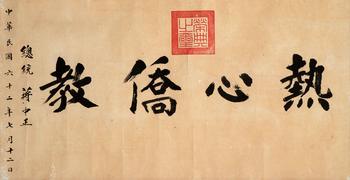 熱心僑教
榮典之璽
總統 蔣中正
中華民國六十二年七月十二日